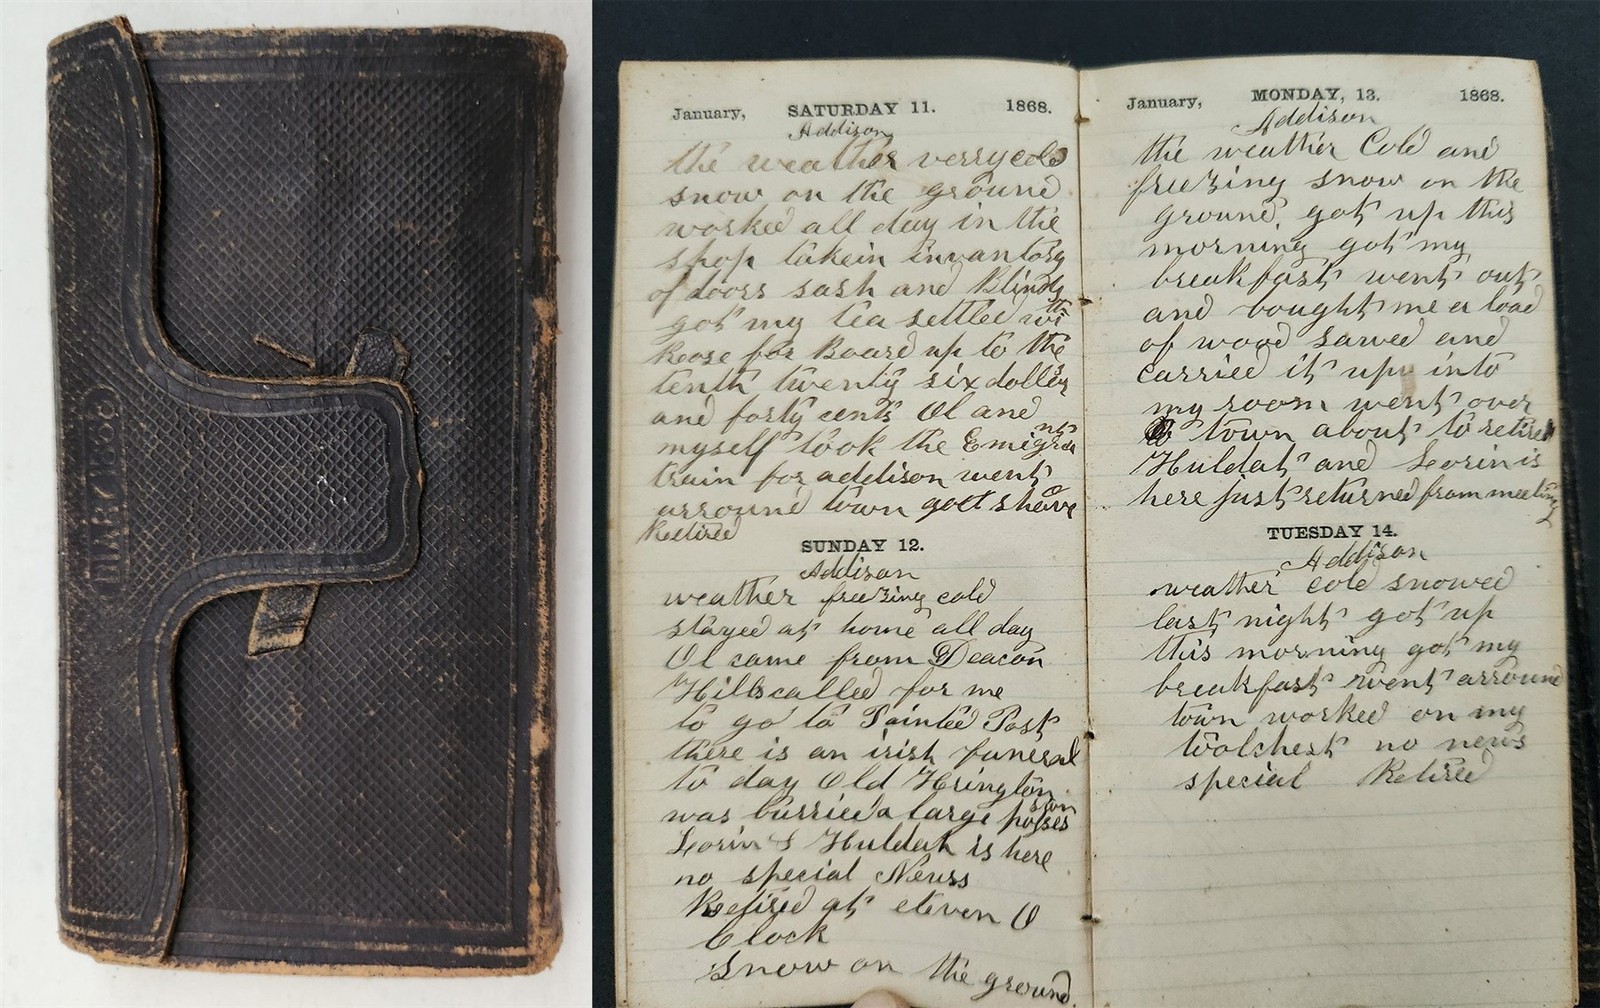 DIARY 1868
January, SATURDAY 11. 1868.
Addison
the weather verry cold
snow on the ground
worked all day in the
shop takein invantory
of doors sash and Blinds
got my tea settled with
for Board up to the
tenth twenty six dollars
and forty cents Ol and
myself took the Emigrants
train for addison went
arround town gott shave
Retired
SUNDAY 12.
Addison
weather freezing cold
stayed at home all day
Ol came from Deacon
Hills called for me
to go to Painted Post
there is an irish funeral
to day Old Hrington
was burried a large possession
Lorin & Huldah is here
no special Newss
Retired at eleven O
Clock
snow on the ground
January, MONDAY, 13. 1868.
Addison
the weather Cold and
freezing snow on the
ground, got up this
morning got my
breakfast went out
and bought me a load
of wood sawed and
carried it up into
my room went over
town about to retired
Huldah and Lorin is
here just returned from meeting
TUESDAY 14.
Addison
weather cold snowed
last night got up
this morning got my
breakfast went arround
town worked on my
toolchest no news
special Retired